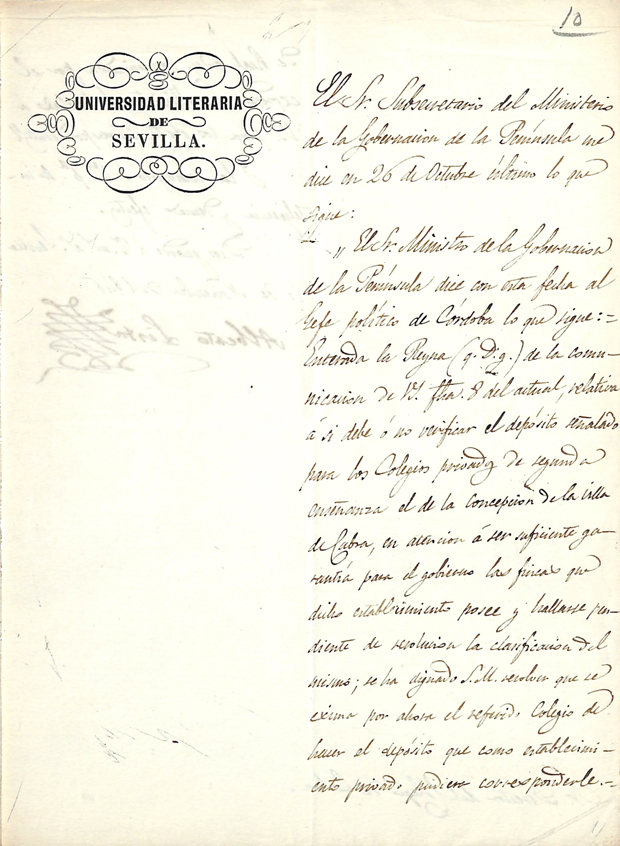 10
UNIVERSIDAD LITERARIA
DE
SEVILLA.
El Sr. Subsecretario del Ministerio
de la Gobernacion de la Península me
dice en 26 de Octubre último lo que
sigue:
„ El Sr. Ministro de la Gobernacion
de la Península dice con esta fecha al
Gefe político de Córdoba lo que sigue:=
Enterada la Reyna (q. D. g.) de la comu-
nicacion de V.S. fha. 8 del actual, relativa
á si debe ó no verificar el depósito señalado
para los Colegios privados de segunda
enseñanza el de la Concepcion de la villa
de Cabra, en atencion á ser suficiente ga-
rantía para el gobierno las fincas que
dicho establecimiento posee y hallarse pen-
diente de resolucion la clasificacion del
mismo; se ha dignado S.M. resolver que se
exima por ahora el referido Colegio de
hacer el depósito que como establecimi-
ento privado pudiera corresponderle.=